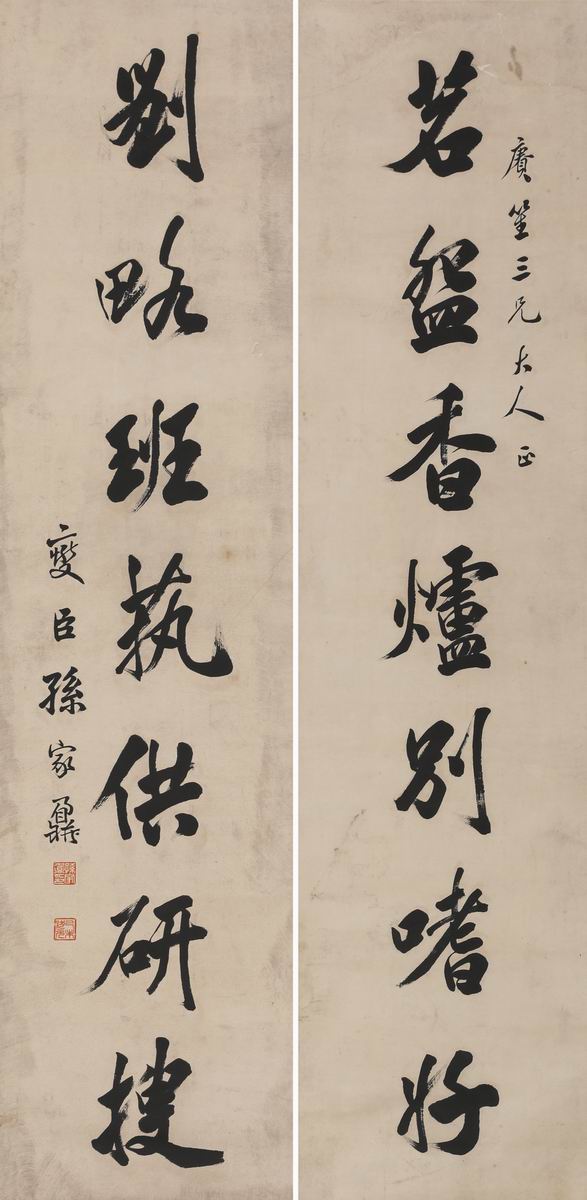 賡笙三兄大人正
茗盌香爐別嗜好
劉略班執供研搜
燮臣孫家鼐